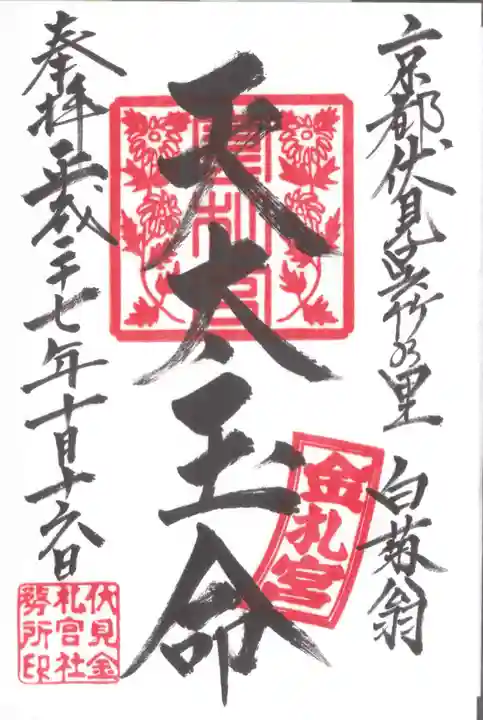 京都伏見久米の里 白菊翁
天太玉命
金札宮
金札宮
奉拝 平成二十七年十月十六日
伏見金
札宮社
務所印